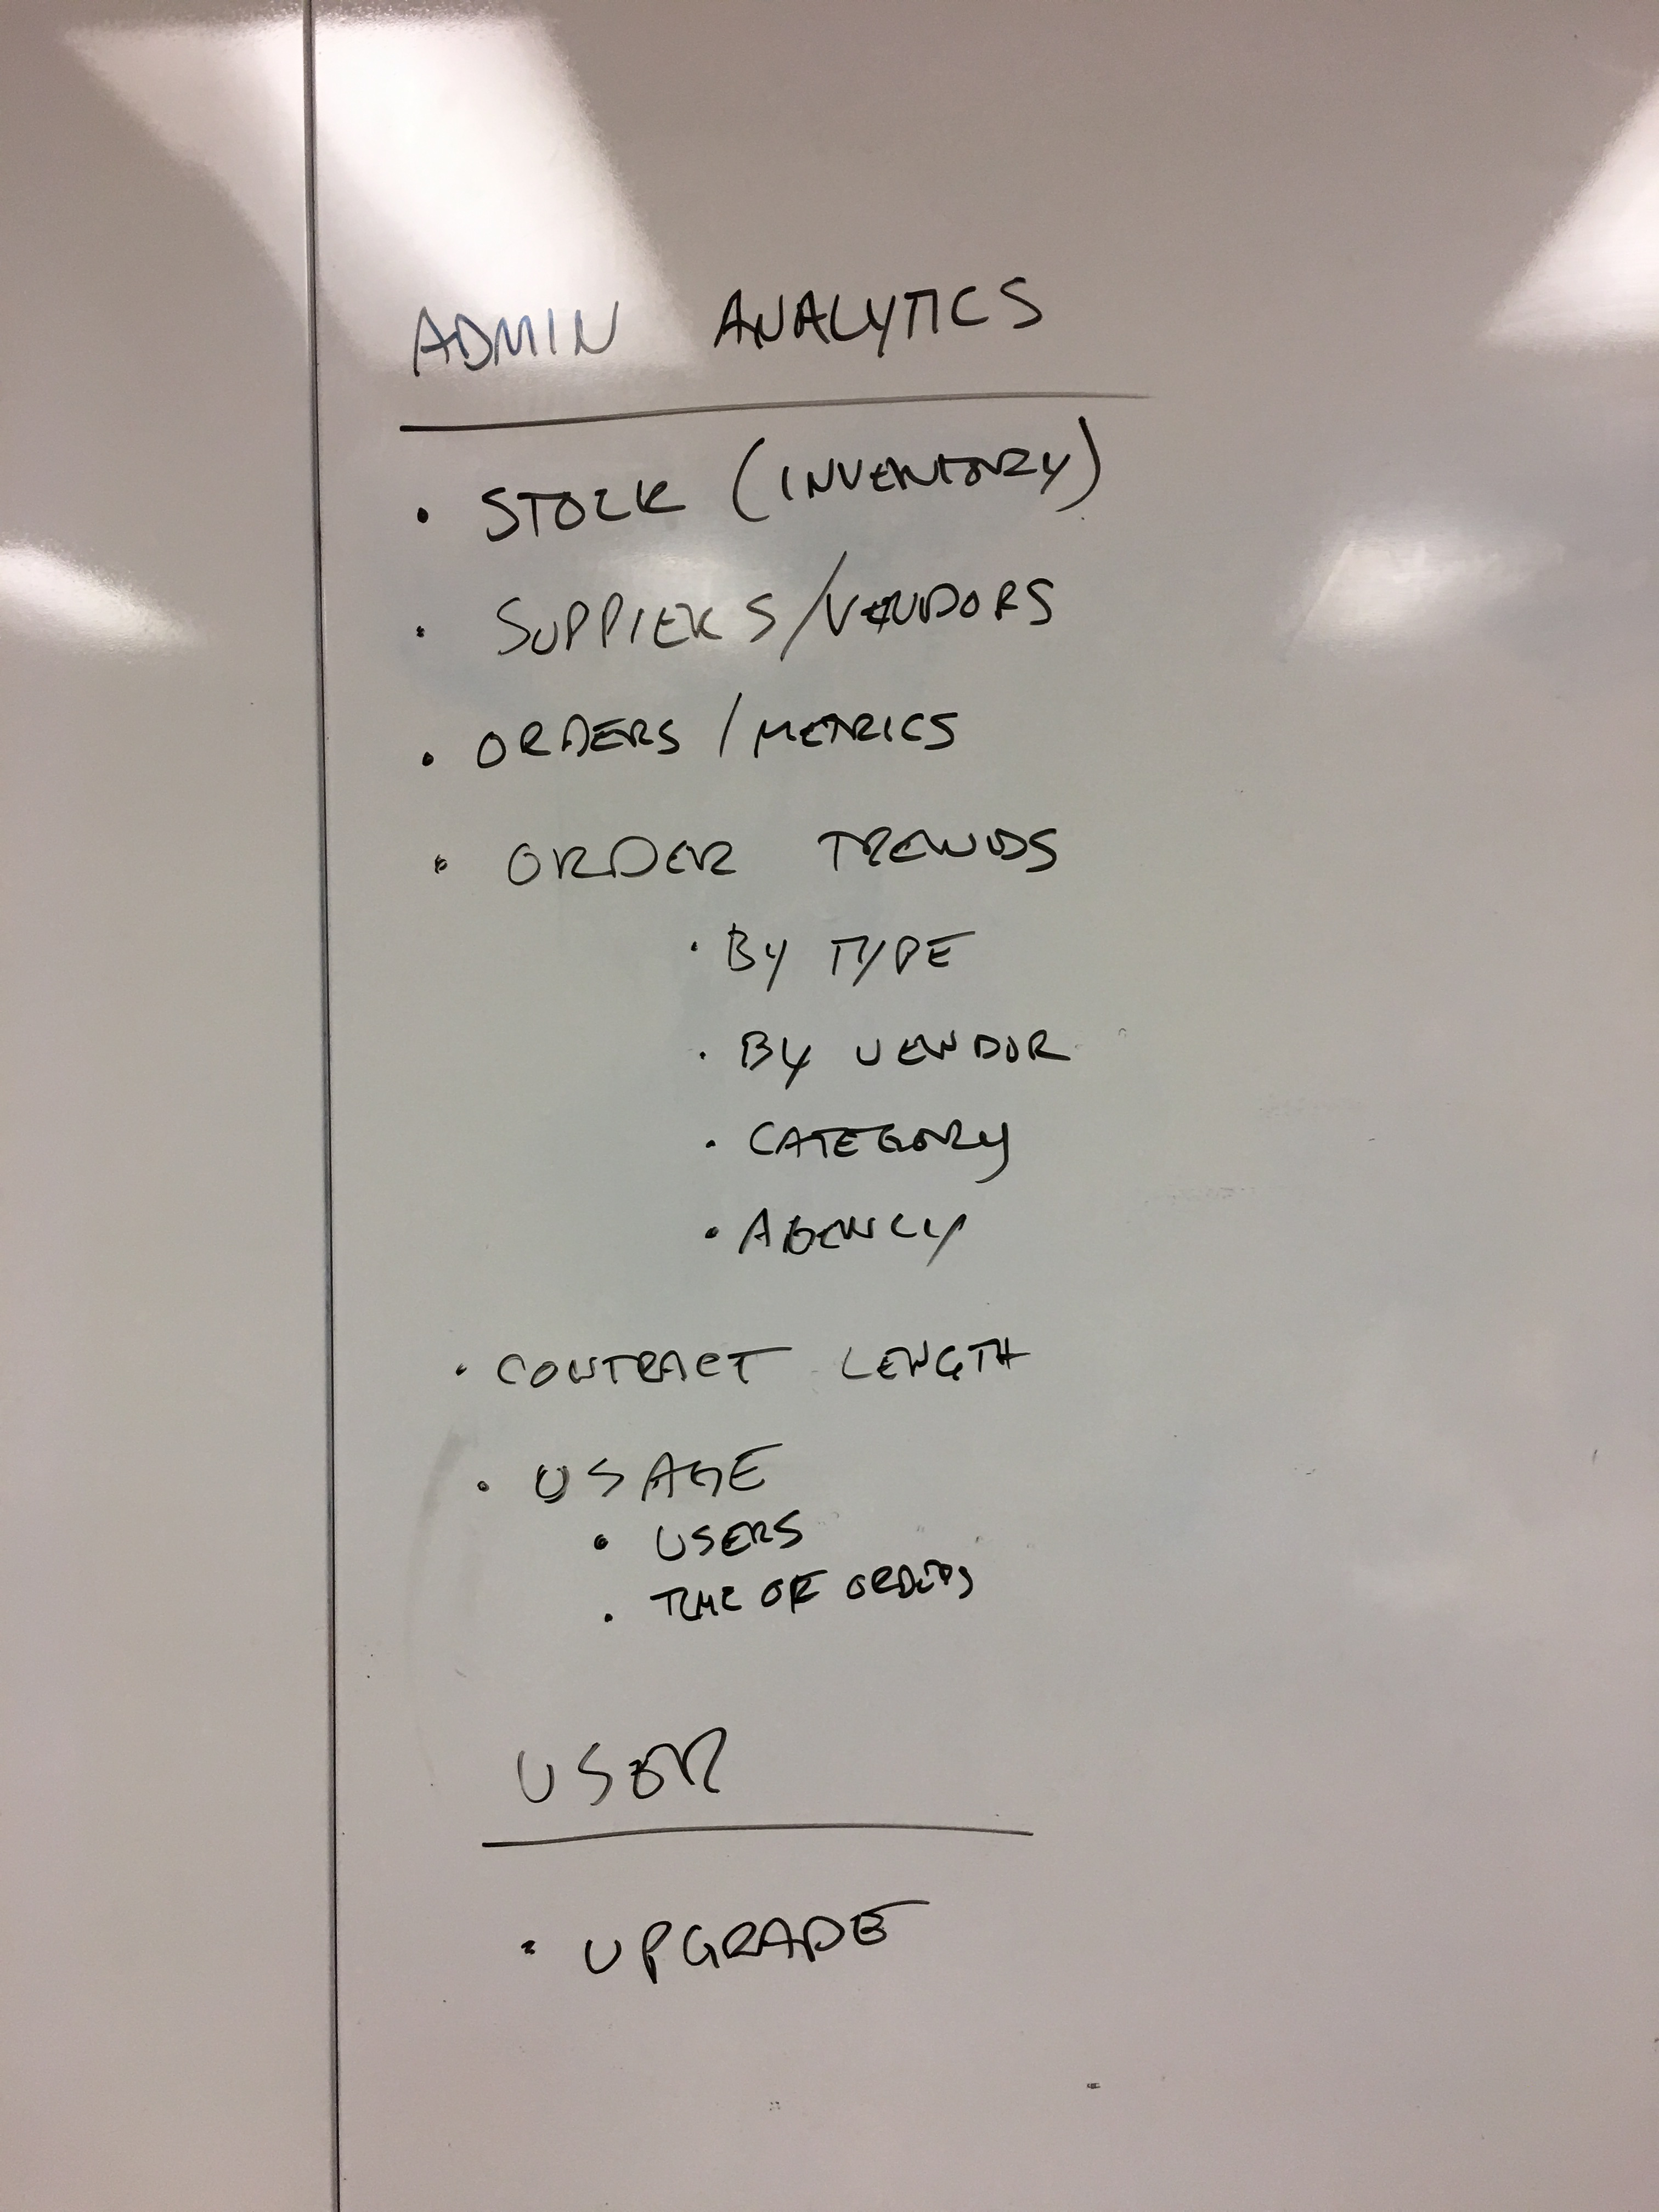 ADMIN ANALYTICS
• STOCK (INVENTORY)
• SUPPIERS/VENDORS
• ORDERS / METRICS
• ORDER TRENDS
• BY TYPE
• BY VENDOR
• CATEGORY
• AGENCY
• CONTRACT LENGTH
• USAGE
• USERS
• TIME OF ORDERS
USER
• UPGRADE